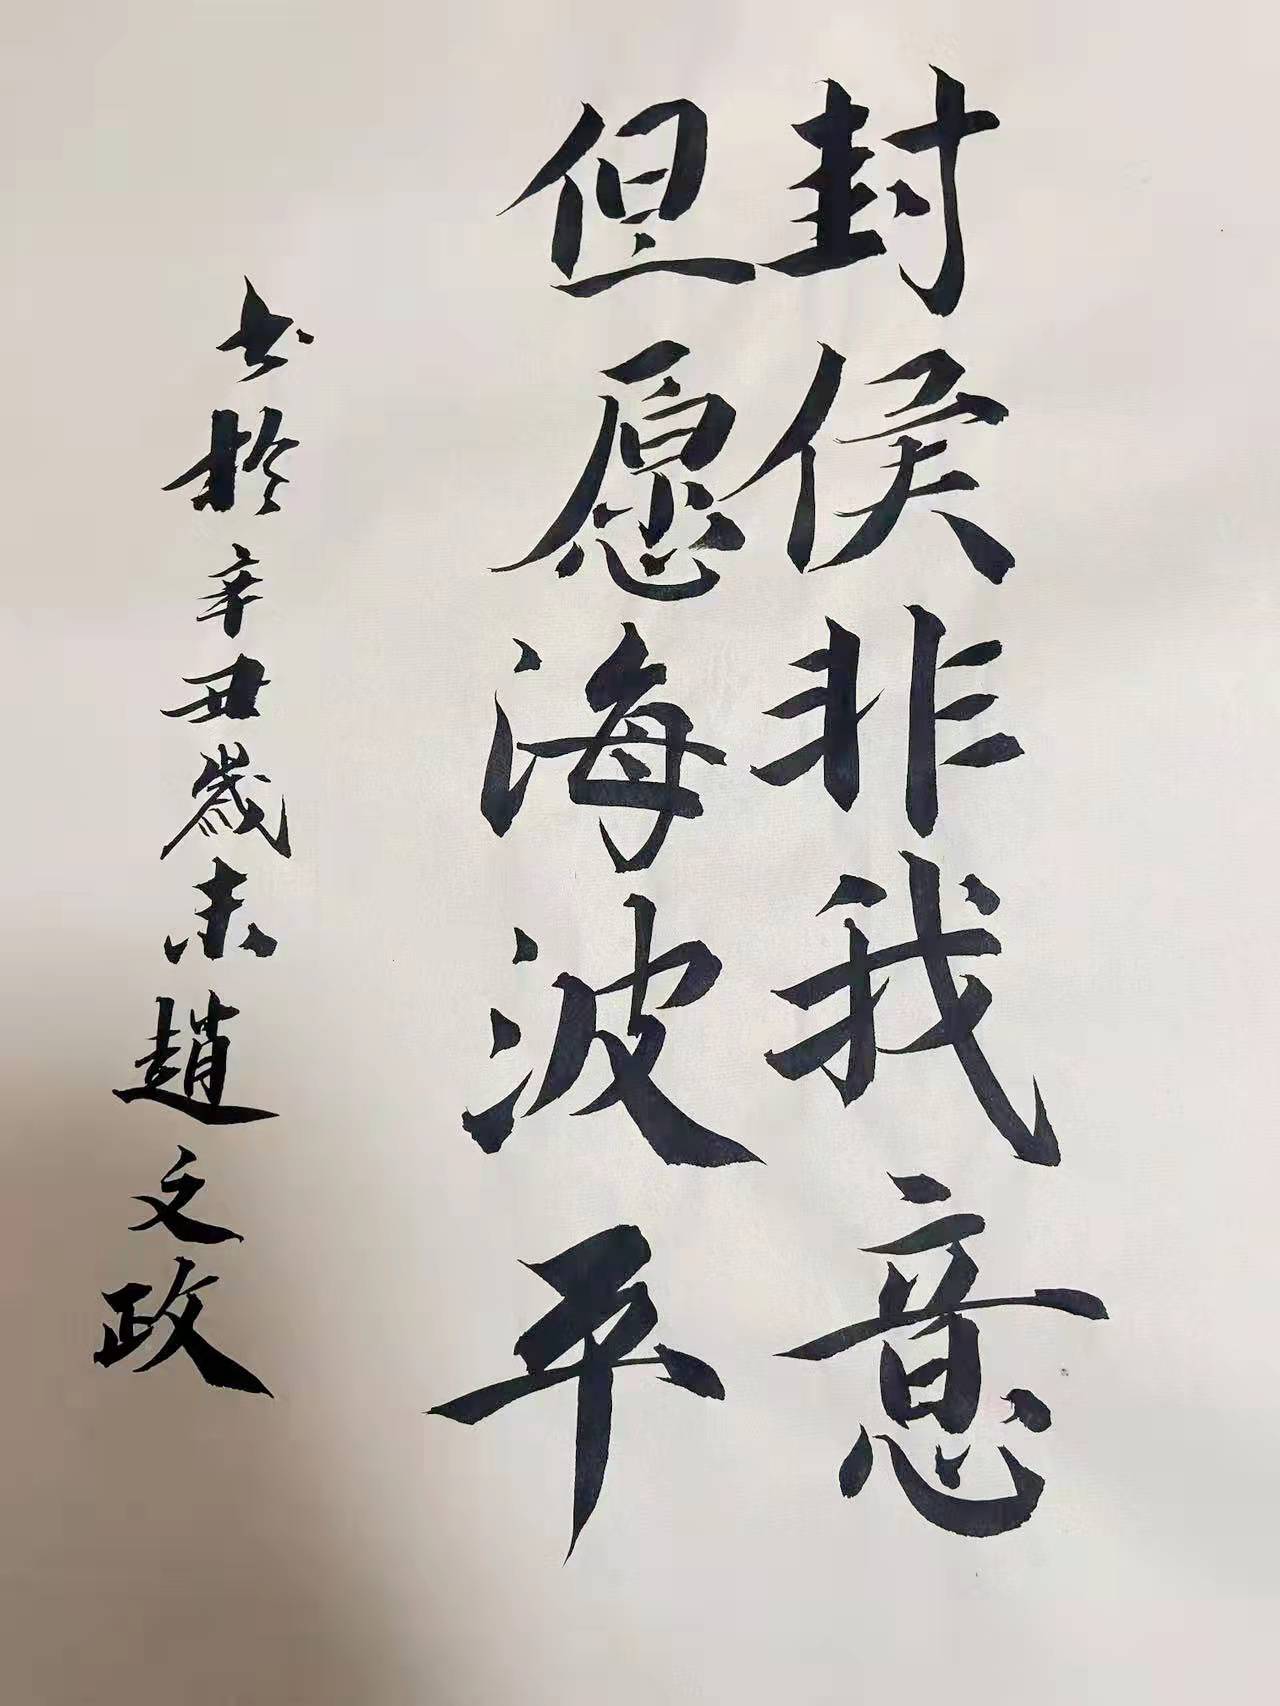 封侯非我意
但愿海波平
书於辛丑歲末趙文政